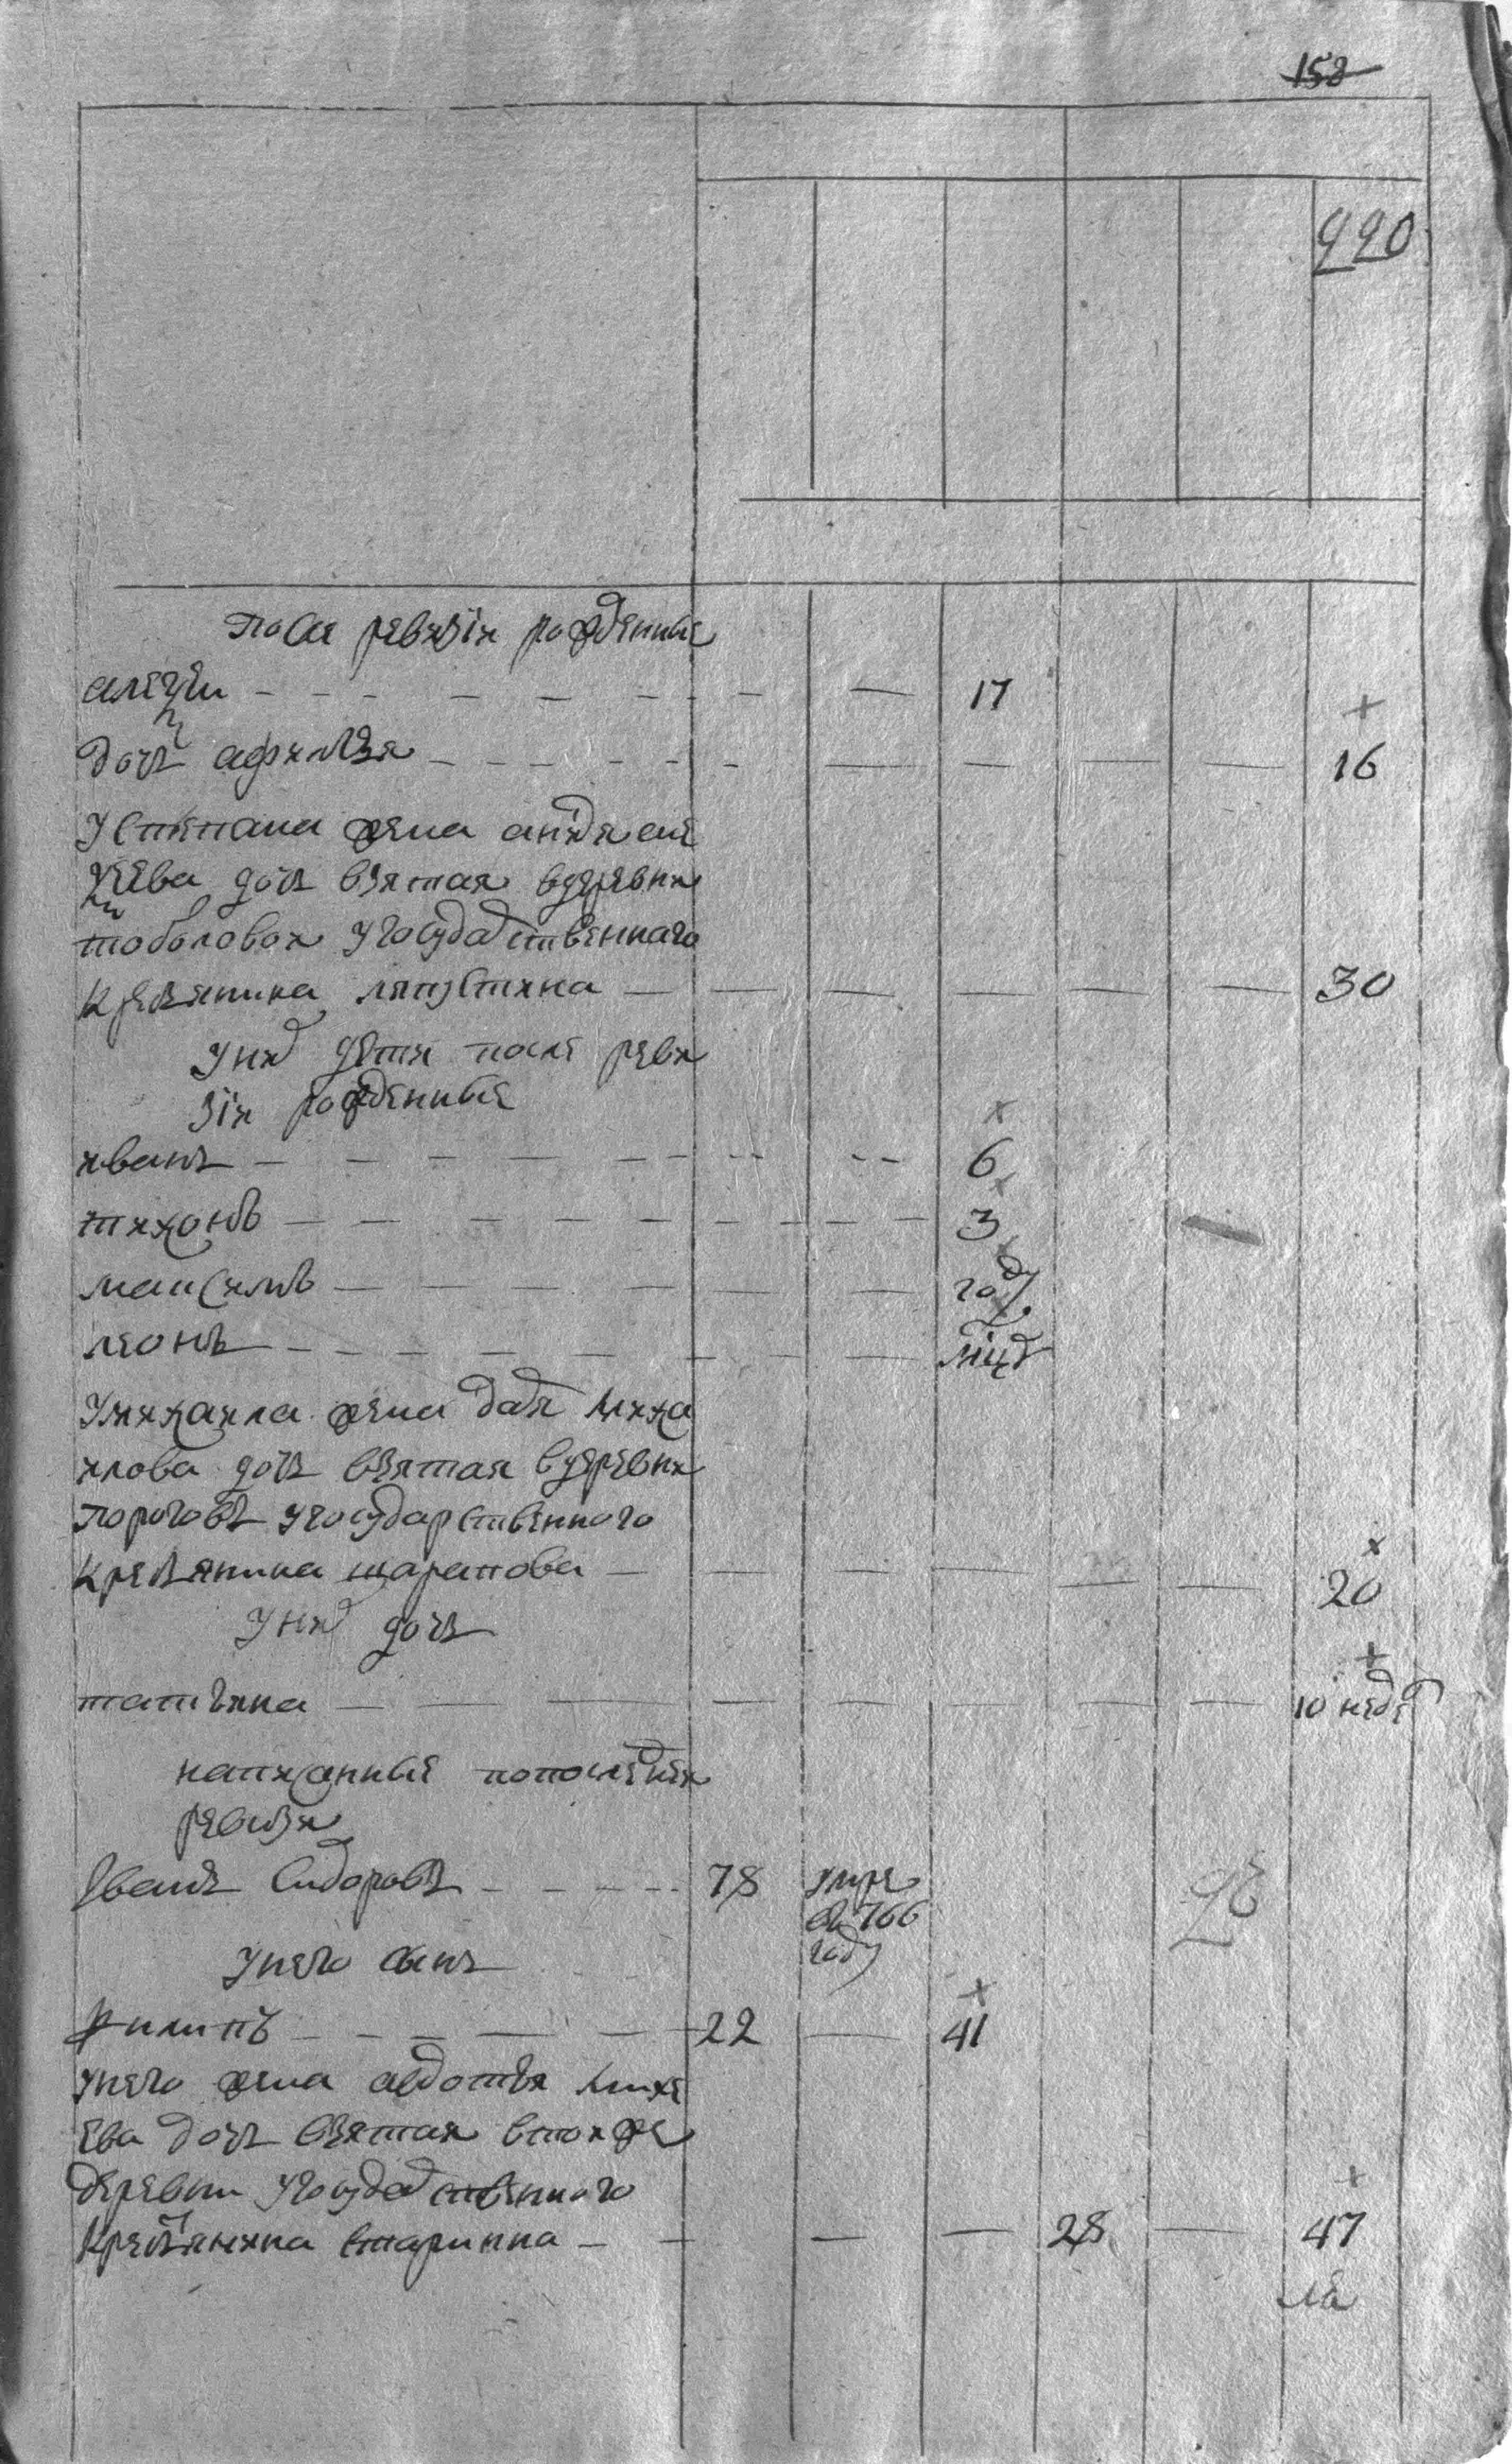 158
990
после ревизïи рожденные
алексеи — 17
дочь афимья — 16
У степана жена анна але
ксеева дочь взятая вдеревни
тоболовои Угосударственнаго
крестьянина ляпустина — 30
Уних дети после реви
зïи рожденные
иванъ — 6
тихонъ — 3
максимъ — году
леонъ — мсцъ
Умихаила жена дарья миха
илова дочь взятая вдеревни
пороговъ Угосударственного
крестьянина шарапова — 20
Уних дочь
татьяна — 10 недел
написанные попоследнеи
ревизи
Иванъ Сидоровъ — 78 умре
въ 766
году
Унего сынъ
филипъ — 22 — 41
Унего жена авдотья михе
ева дочь взятая втои же
деревни Угосударственного
крестьянина старинна — 28 — 47